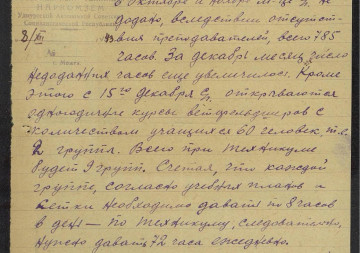 в октябре и ноябре м-це с.г. не
додано, вследствии отсутст-
8/XII 43 вия преподавателей, всего 785
часов. За декабрь месяц число
недоданных часов еще увеличилось. Кроме
этого с 15го декабря с/г открываются
одногодичные курсы ветфельдшеров с
количеством учащихся 60 человек, т.е.
2 группы. Всего при техникуме
будет 9 групп. Считая, что каждой
группе, согласно учебных планов и
сетки необходимо давать по 8 часов
в день — по техникуму, следовательно,
нужно давать 72 часа ежедневно.